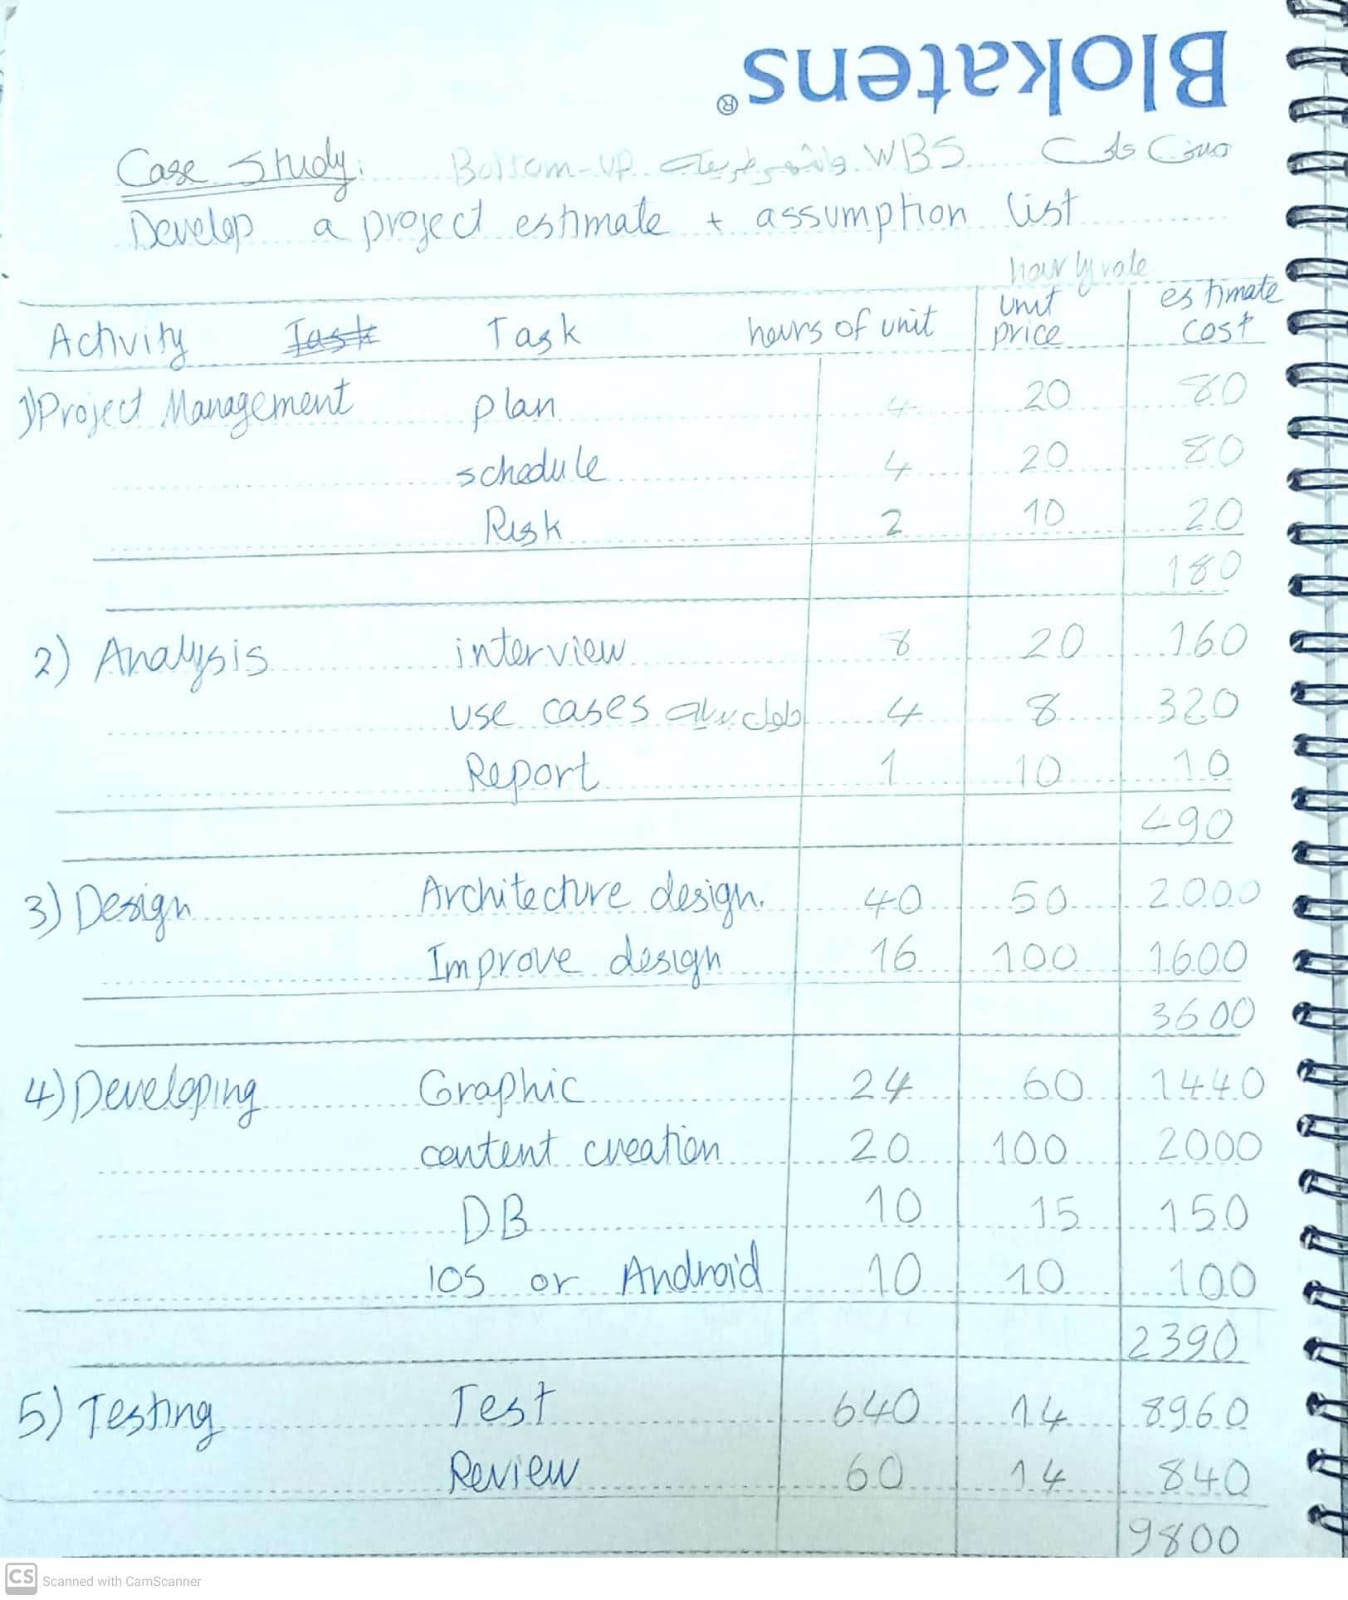 Blokatens®
Case Study: Bottom-up WBS
Develop a project estimate + assumption list
hourly rate
Activity Task Task hours of unit unit price estimate cost
1) Project Management plan 4 20 80
schedule 4 20 80
Risk 2 10 20
180
2) Analysis interview 8 20 160
use cases 4 8 320
Report 1 10 10
490
3) Design Architecture design. 40 50 2000
Improve design 16 100 1600
3600
4) Developing Graphic 24 60 1440
content creation 20 100 2000
DB 10 15 150
IOS or Android 10 10 100
2390
5) Testing Test 640 14 8960
Review 60 14 840
9800
CS Scanned with CamScanner